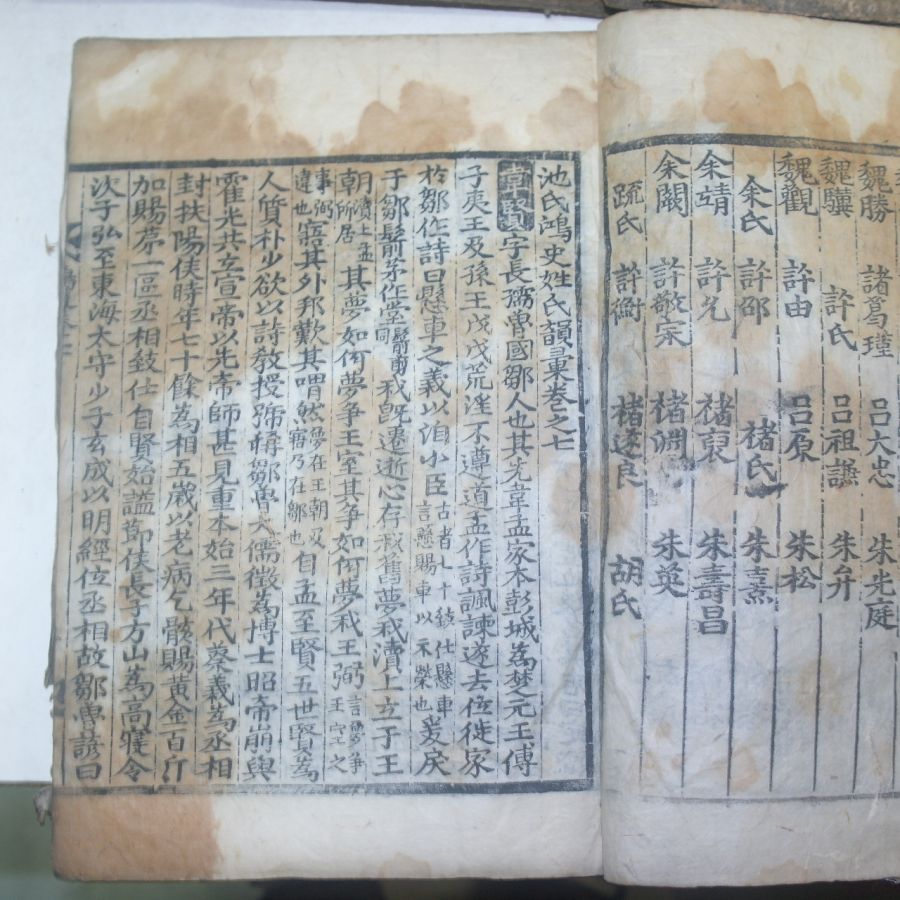 魏勝 諸葛瑾 呂大忠 朱光庭
魏驥 許氏 呂祖謙 朱弁
魏觀 許由 呂原 朱松
余氏 許邵 褚氏 朱熹
余靖 許允 褚裒 朱壽昌
余闕 許敬宗 褚淵 朱英
疏氏 許衡 褚遂良 胡氏
池氏鴻史姓氏韻彙卷之七
韋賢字長孺魯國鄒人也其先韋孟家本彭城為楚元王傅
子夷王及孫王戊戊荒淫不遵道孟作詩諷諫遂去位徙家
於鄒作詩曰懸車之義以洎小臣古者七十致仕懸車言懸賜車以示榮也爰戾
于鄒鬋茅作堂鬋剪同我旣遷逝心存我舊夢我瀆上立于王
朝瀆上孟所居其夢如何夢爭王室其爭如何夢我王弼言夢爭王室之
事弼違也寤其外邦歎其喟然夢在王朝及寤乃在鄒也自孟至賢五世賢為
人質朴少欲以詩敎授號稱鄒魯大儒徵為博士昭帝崩與
霍光共立宣帝以先帝師甚見重本始三年代蔡義為丞相
封扶陽侯時年七十餘為相五歲以老病乞骸賜黃金百斤
加賜苐一區丞相致仕自賢始謚節侯長子方山為高寢令
次子弘至東海太守少子玄成以明經位丞相故鄒魯諺曰